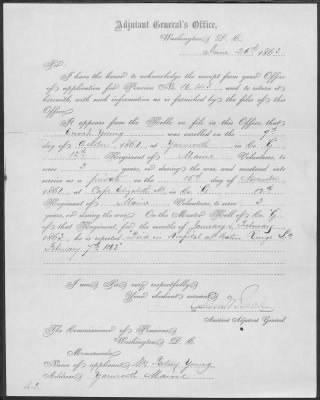 Adjutant General's Office,
Washington, D. C.
June 26th 1863
Sir:
I have the honor to acknowledge the receipt from your Office
of application for Pension No. 16.445 and to return it
herewith, with such information as is furnished by the files of this
Office.
It appears from the Rolls on file in this Office, that
Young was enrolled on the 7th
day of October 1861, at Yarmouth in Co. G
12th Regiment of Maine Volunteers, to
serve 3 years, or during the war, and mustered into
service as a private on the 15th day of November
1861, at Cape Elizabeth M. in Co. G 12th
Regiment of Maine Volunteers, to serve 3
years, or during the war. On the Muster Roll of Co. G
of that Regiment, for the months of January & February
1863, he is reported Died in Hospital at Baton Rouge La
February 7th 1863
I am, Sir, very respectfully,
Your obedient servant,
Assistant Adjutant General.
The Commissioner of Pensions,
Washington, D. C.
Memoranda:
Name of applicant, Young
Address, Yarmouth Maine